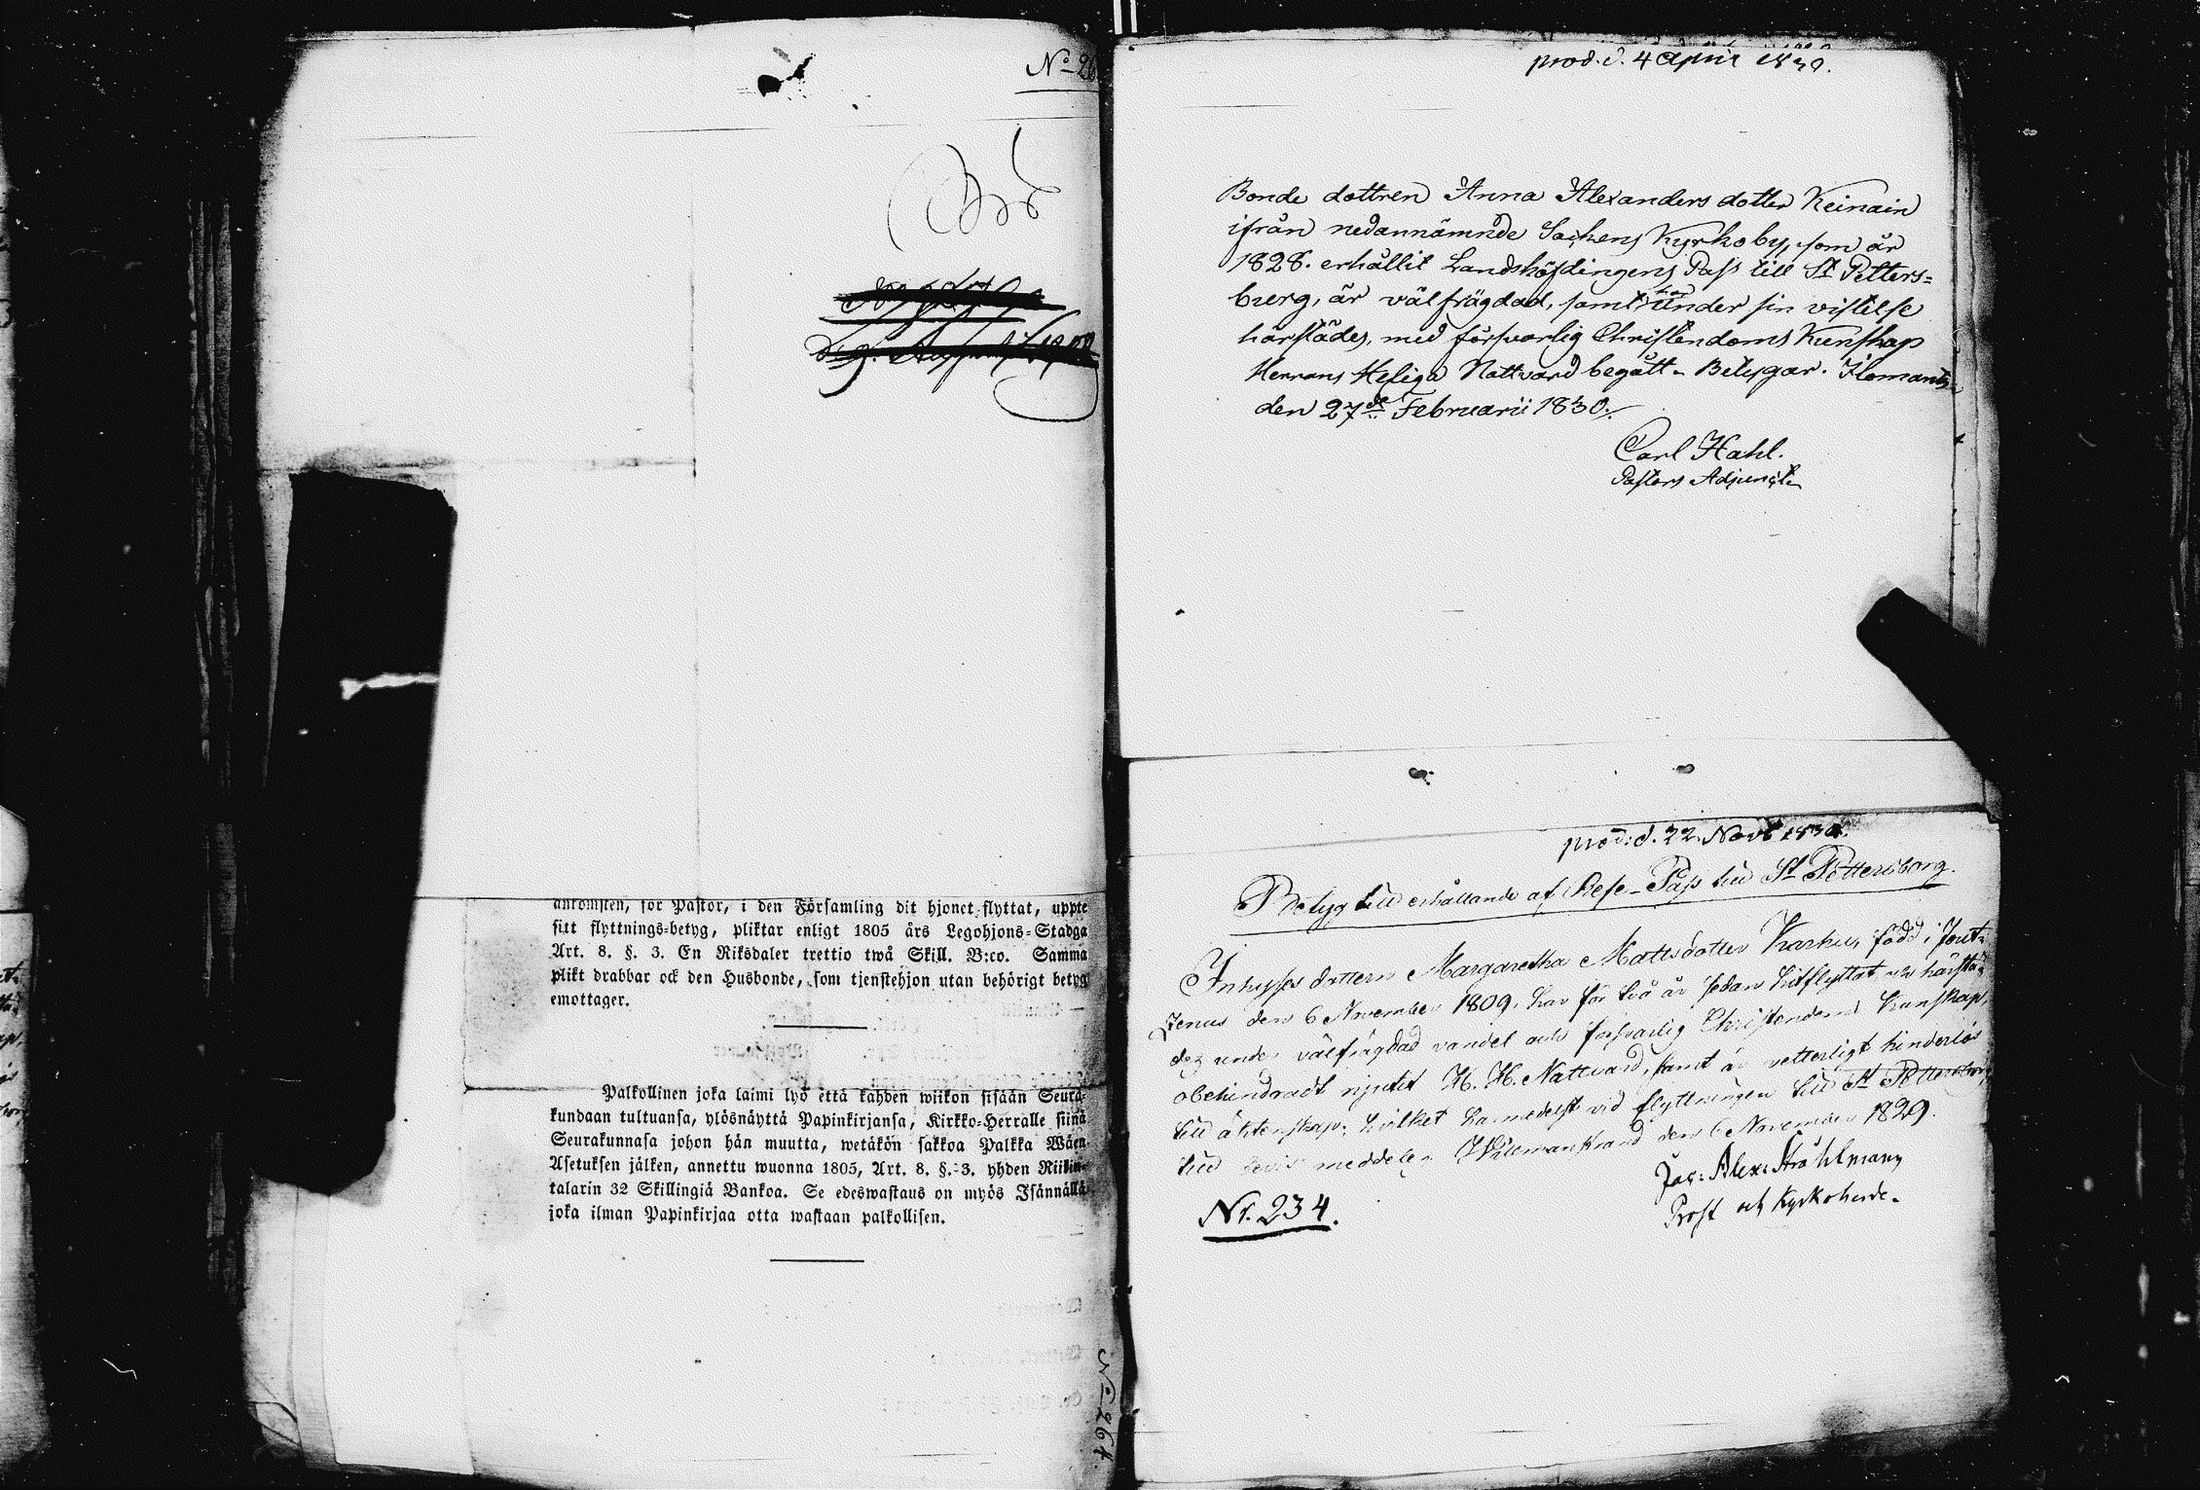 No 26
ankomsten, för Pastor, i den Församling dit hjonet flyttat, uppte
sitt flyttnings-betyg, pliktar enligt 1805 års Legohjons-Stadga
Art. 8. §. 3. En Riksdaler trettio twå Skill. B:co. Samma
plikt drabbar ock den Husbonde, som tjenstehjon utan behörigt betyg
emottager.
Palkollinen joka laimi lyö että kahden wiikon sisään Seura-
kundaan tultuansa, ylösnäyttä Papinkirjansa, Kirkko-Herralle siinä
Seurakunnasa johon hän muutta, wetäkön sakkoa Palkka Wäen
Asetuksen jälken, annettu wuonna 1805, Art. 8. §. 3. yhden Riikin-
talarin 32 Skillingiä Bankoa. Se edeswastaus on myös Isännällä
joka ilman Papinkirjaa otta wastaan palkollisen.
No 264.
prod. d. 4 April 1830.
Bonde dottren Anna Alexanders dotter Keinain
ifrån nedannämnde Sockens Kyrkoby, som år
1828. erhållit Landshöfdingens Pass till St Petters-
burg, är välfrägdad, samt har under sin vistelse
härstädes, med försvarlig Christendoms Kunskap
Herrans Heliga Nattvard begått. Betygar. Ilomants
den 27de Februarii 1830.
Carl Hahl.
Pastors Adjunct.
prod: d. 22. Novb 1830.
Betyg till erhållande af Rese-Pass till St Pettersborg.
Inhyses dottern Margaretha Mattsdotter Karhu, född i Jout-
zenus den 6 November 1809, har för två år sedan hitflyttat och härstä-
des under välfrägdad vandel och försvarlig Christendoms Kunskap,
obehindradt njutit H. H. Nattvard, samt är vetterligt hinderlös
till äktenskap; hvilket harmedelst vid flyttningen till St Pettersborg
till bevis meddelas Willmanstrand den 6 November 1829.
Jac: Alex: Stråhlman
Prost och Kyrkoherde.
Nr. 234.